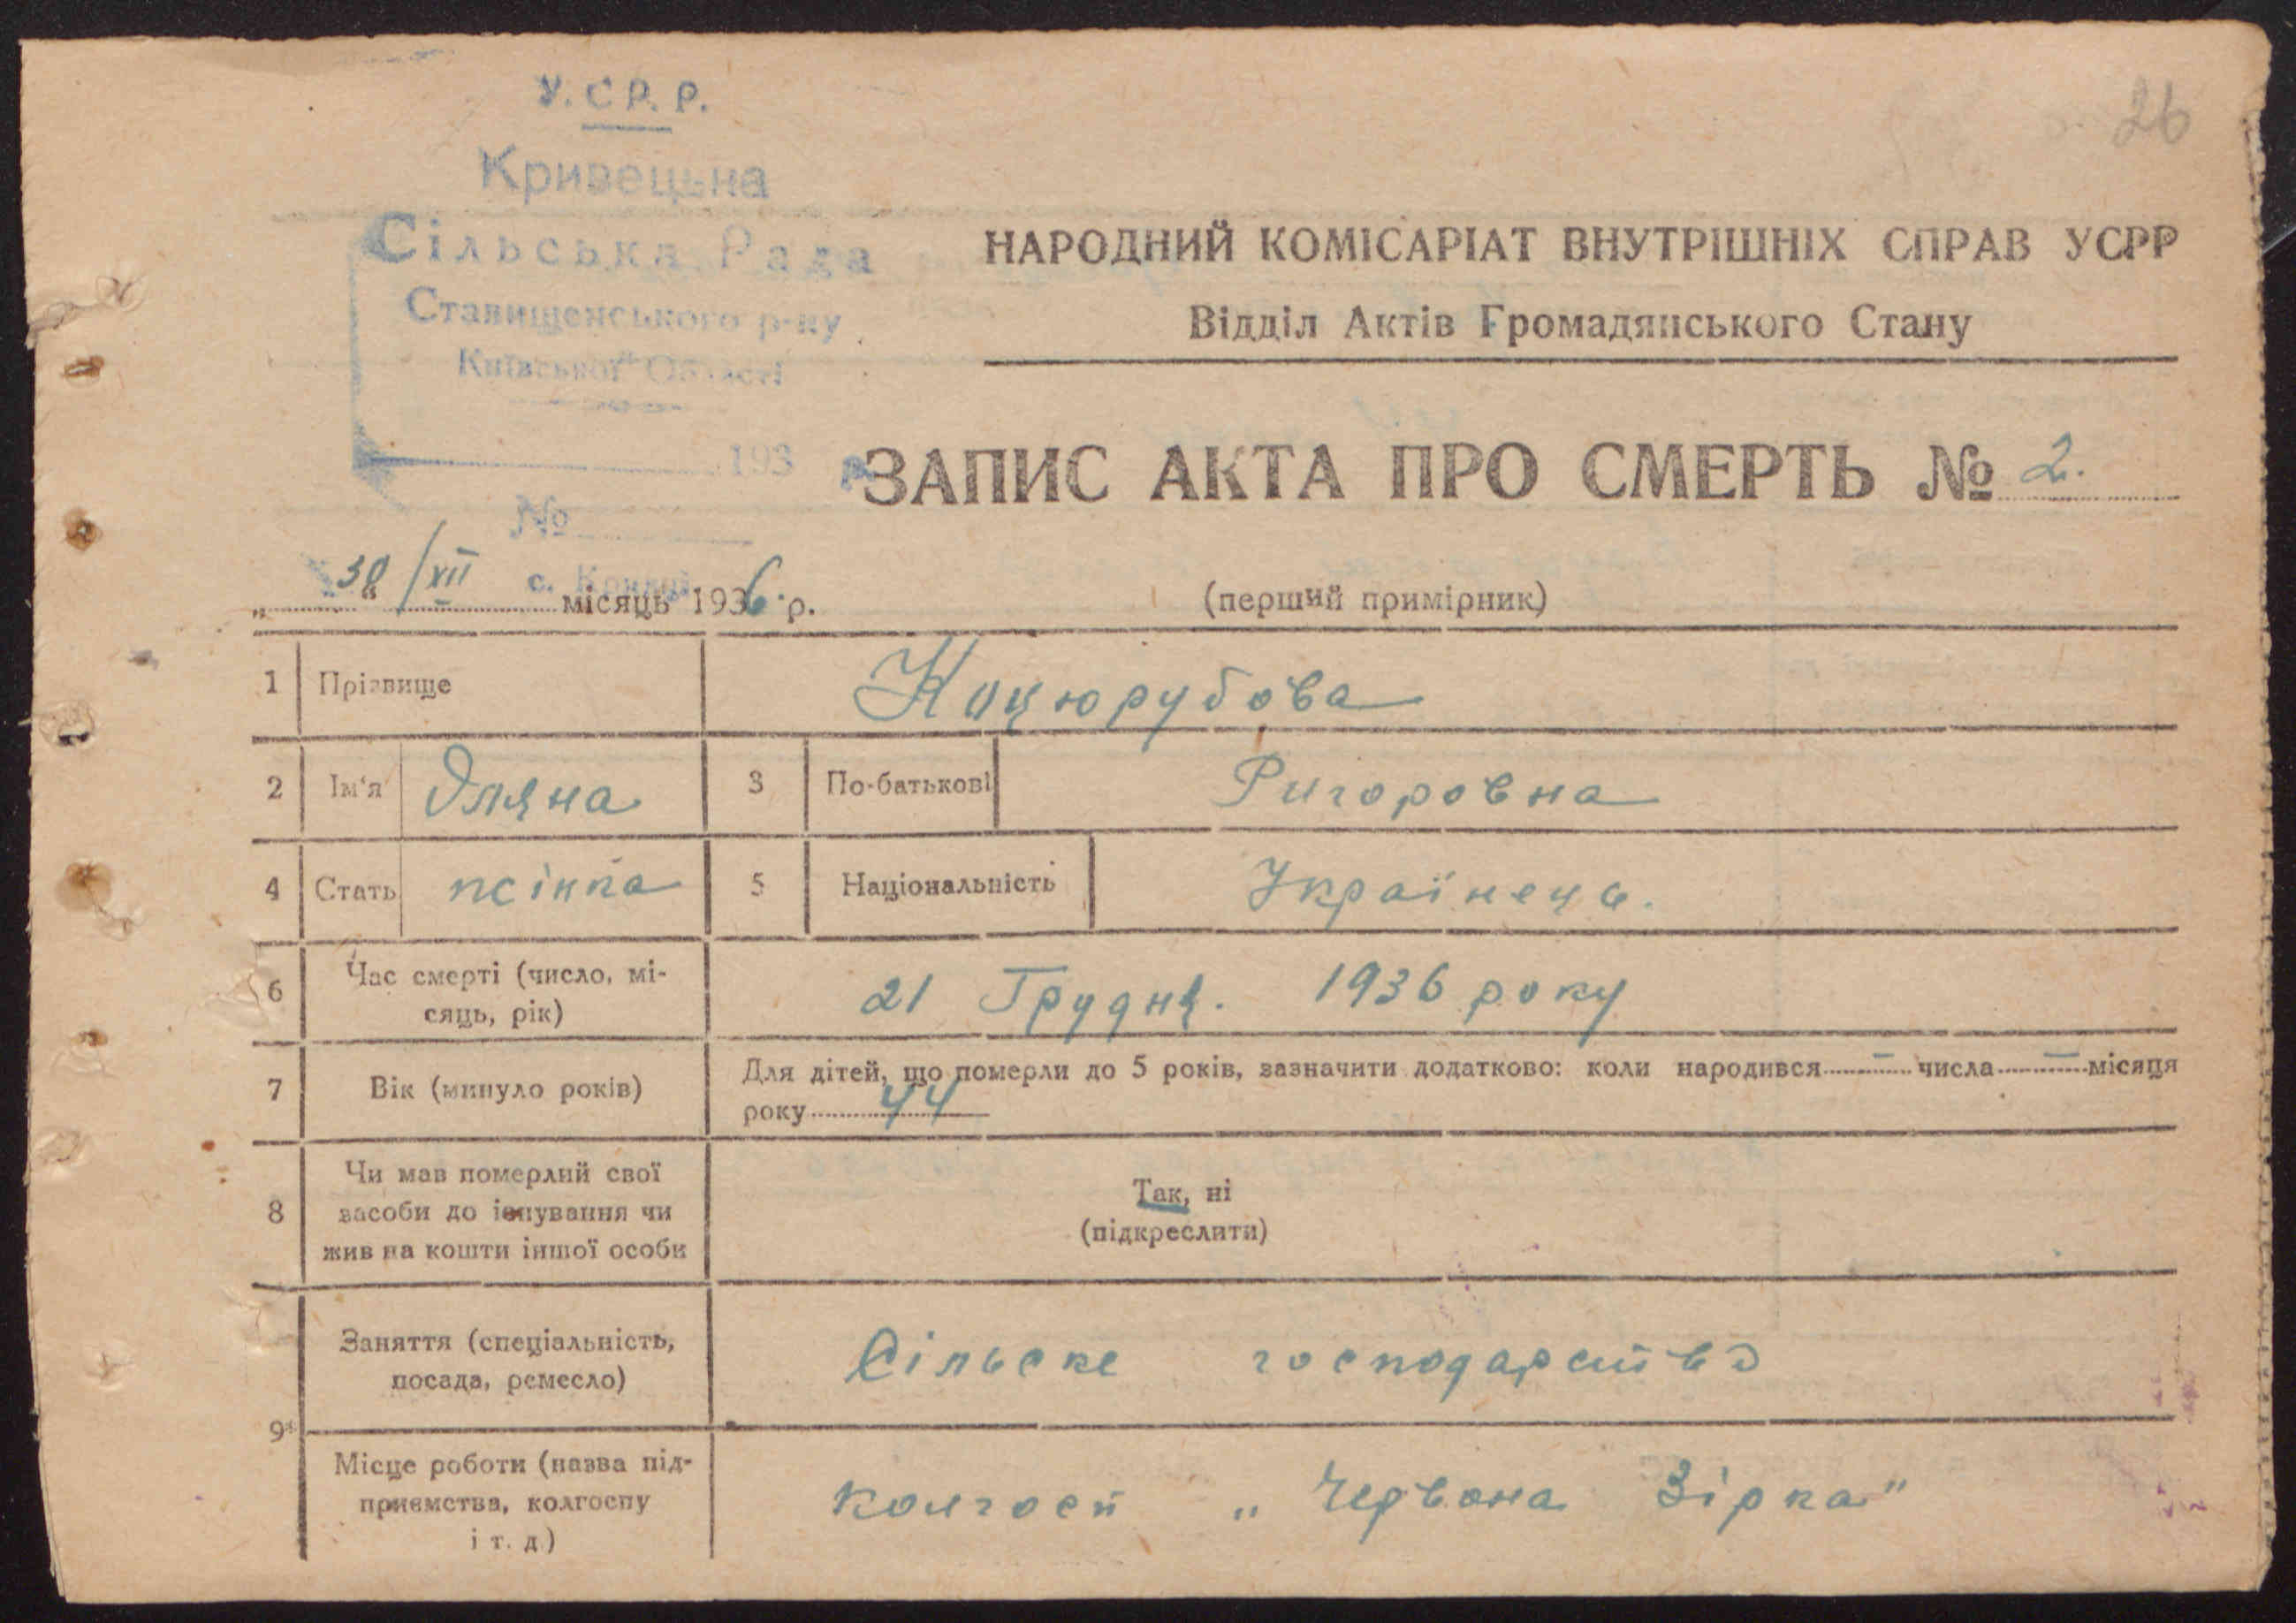 26
У.С.Р.Р.
Кривецька
Сільська Рада
Ставищенського р-ну
Київської Області
193 р.
№
НАРОДНИЙ КОМІСАРІАТ ВНУТРІШНІХ СПРАВ УСРР
Відділ Актів Громадянського Стану
ЗАПИС АКТА ПРО СМЕРТЬ № 2.
„30“/XII місяць 1936 р.
(перший примірник)
1 Прізвище Коцюрубова
2 Ім'я Уляна 3 По-батькові Ригоровна
4 Стать жінка 5 Національність Українець.
6 Час смерті (число, мі-
сяць, рік) 21 Грудня. 1936 року
7 Вік (минуло років) Для дітей, що померли до 5 років, зазначити додатково: коли народився — числа — місяця
року 44
8 Чи мав померлий свої
засоби до існування чи
жив на кошти іншої особи
Так, ні
(підкреслити)
9 Заняття (спеціальність,
посада, ремесло) Сільске господарство
Місце роботи (назва під-
приємства, колгоспу
і т. д.) колгосп „Червона Зірка"